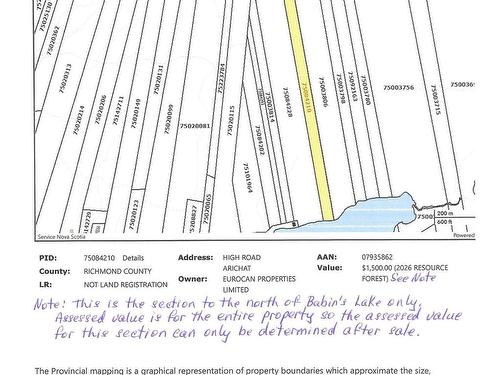 75025130
75020362
75020313
75020214
75020206
75142711
75020149
75020131
75020099
75020081
75223784
75020115
75003814
75084228
75084210
75003806
75003798
75092163
75003780
75003756
75003715
750036
75084202
75101964
75020123
75020065
75208827
75142729
7500
200 m
600 ft
Service Nova Scotia
Powered
PID: 75084210 Details Address: HIGH ROAD AAN: 07935862
County: RICHMOND COUNTY ARICHAT Value: $1,500.00 (2026 RESOURCE
LR: NOT LAND REGISTRATION Owner: EUROCAN PROPERTIES FOREST) See Note
LIMITED
Note: This is the section to the north of Babin's Lake only.
Assessed value is for the entire property so the assessed value
for this section can only be determined after sale.
The Provincial mapping is a graphical representation of property boundaries which approximate the size,